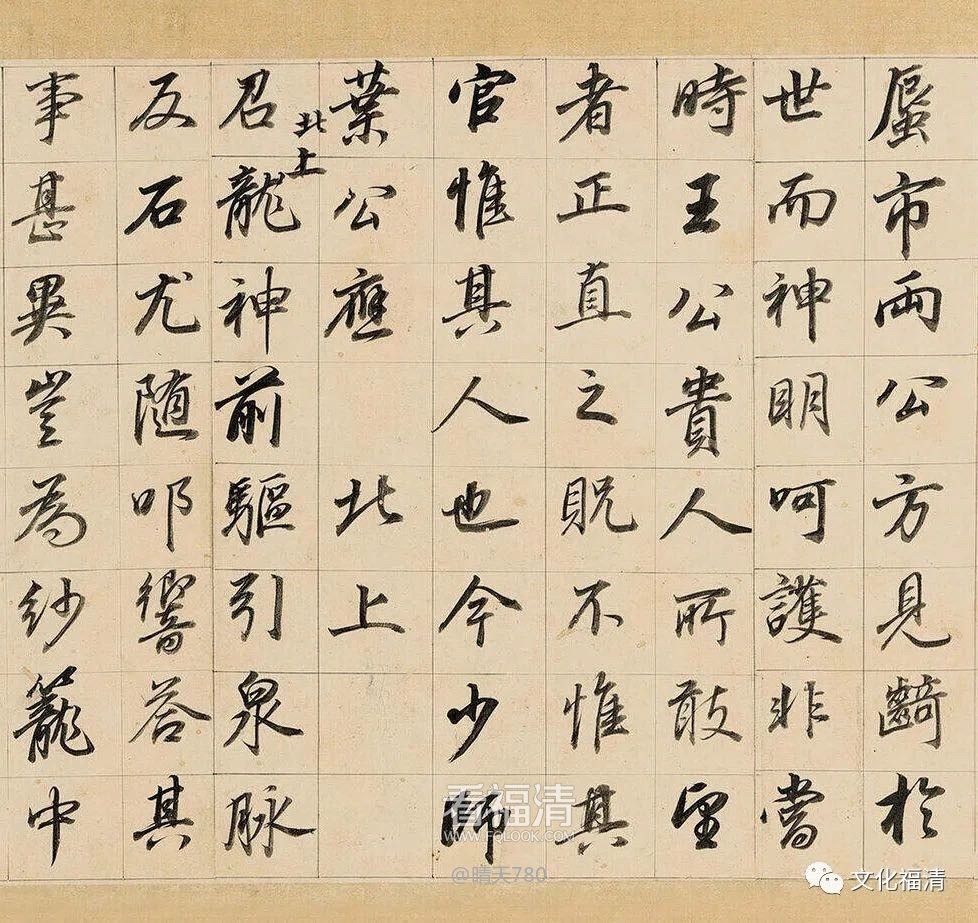 蜃市兩公方見齮於
世而神明呵護非當
時王公貴人所敢望
者正直之貺不惟其
官惟其人也今少師
葉公應 北上
北上
召龍神前驅引泉脉
反石尤随叩響答其
事甚異豈為紗籠中
看福清
WWW.FQLOOK.COM
@晴天780
文化福清